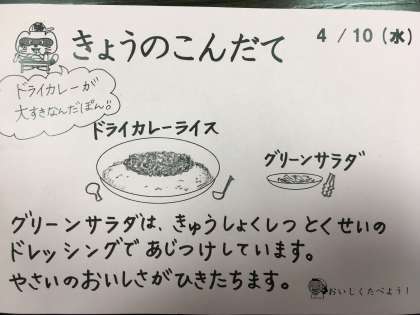 きょうのこんだて
4/10(水)
ドライカレーが
大すきなんだぽん!!
ドライカレーライス
グリーンサラダ
グリーンサラダは、きゅうしょくしつとくせいの
ドレッシングであじつけしています。
やさいのおいしさがひきたちます。
おいしくたべよう!